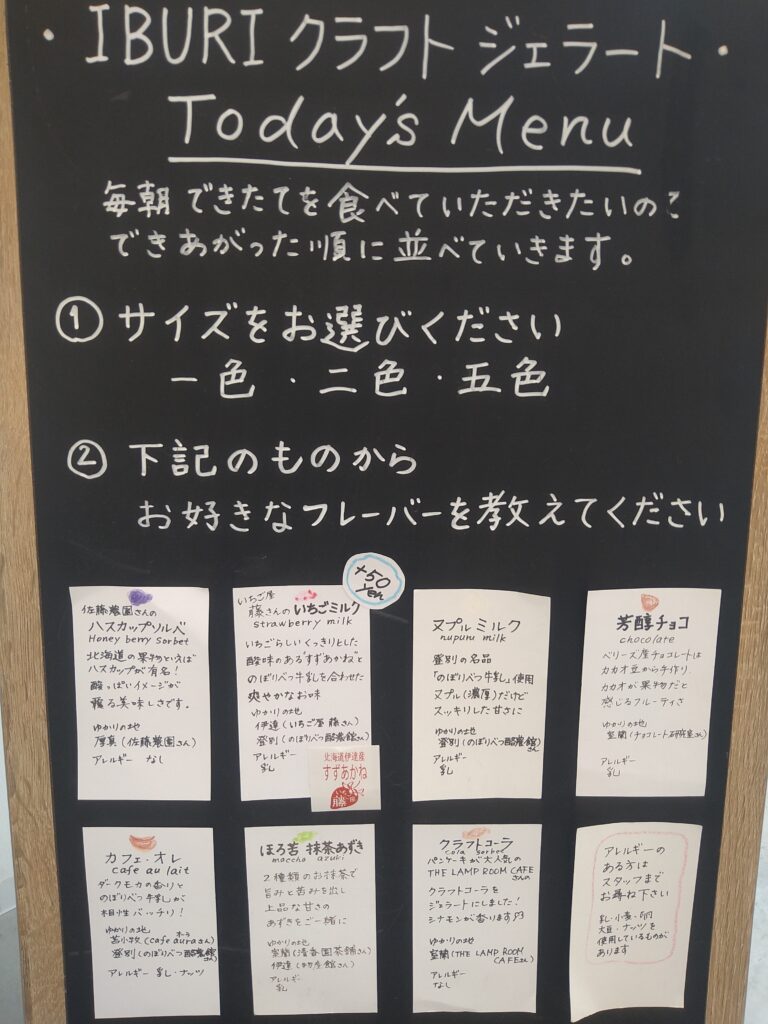 ・IBURI クラフト ジェラート・
Today's Menu
毎朝できたてを食べていただきたいので
できあがった順に並べていきます。
① サイズをお選びください
一色・二色・五色
② 下記のものから
お好きなフレーバーを教えてください
佐藤農園さんの
ハスカップソルベ
Honey berry sorbet
北海道の果物といえば
ハスカップが有名！
酸っぱいイメージが
覆る美味しさです。
ゆかりの地
厚真(佐藤農園さん)
アレルギー なし
+50
yen
いちご屋
藤さんの いちごミルク
strawberry milk
いちごらしいくっきりとした
酸味のある"すずあかね"と
のぼりべつ牛乳を合わせた
爽やかなお味
ゆかりの地
伊達(いちご屋 藤さん)
登別(のぼりべつ酪農館さん)
アレルギー
乳
北海道伊達産
すずあかね
藤
ヌプルミルク
nupuru milk
登別の名品
「のぼりべつ牛乳」使用
ヌプル(濃厚)だけど
スッキリした甘さに
ゆかりの地
登別(のぼりべつ酪農館さん)
アレルギー
乳
芳醇チョコ
chocolate
ベリーズ産チョコレートは
カカオ豆から手作り
カカオが果物だと
感じるフルーティさ
ゆかりの地
室蘭(チョコレート研究室さん)
アレルギー
乳
カフェ・オレ
cafe au lait
ダークモカの香りと
のぼりべつ牛乳が
相性バッチリ！
ゆかりの地
苫小牧(cafe auraさん)
登別(のぼりべつ酪農館さん)
アレルギー 乳・ナッツ
ほろ苦 抹茶あずき
maccha azuki
2種類のお抹茶で
旨みと苦みを出し
上品な甘さの
あずきをご一緒に
ゆかりの地
室蘭(清香園茶舗さん)
伊達(物産館さん)
アレルギー
乳
クラフトコーラ
cola sorbet
パンケーキが大人気の
THE LAMP ROOM CAFE
さんの
クラフトコーラを
ジェラートにしました！
シナモンが香ります
ゆかりの地
室蘭(THE LAMP ROOM
CAFEさん)
アレルギー
なし
アレルギーの
ある方は
スタッフまで
お尋ね下さい
乳・小麦・卵
大豆・ナッツを
使用しているものが
あります